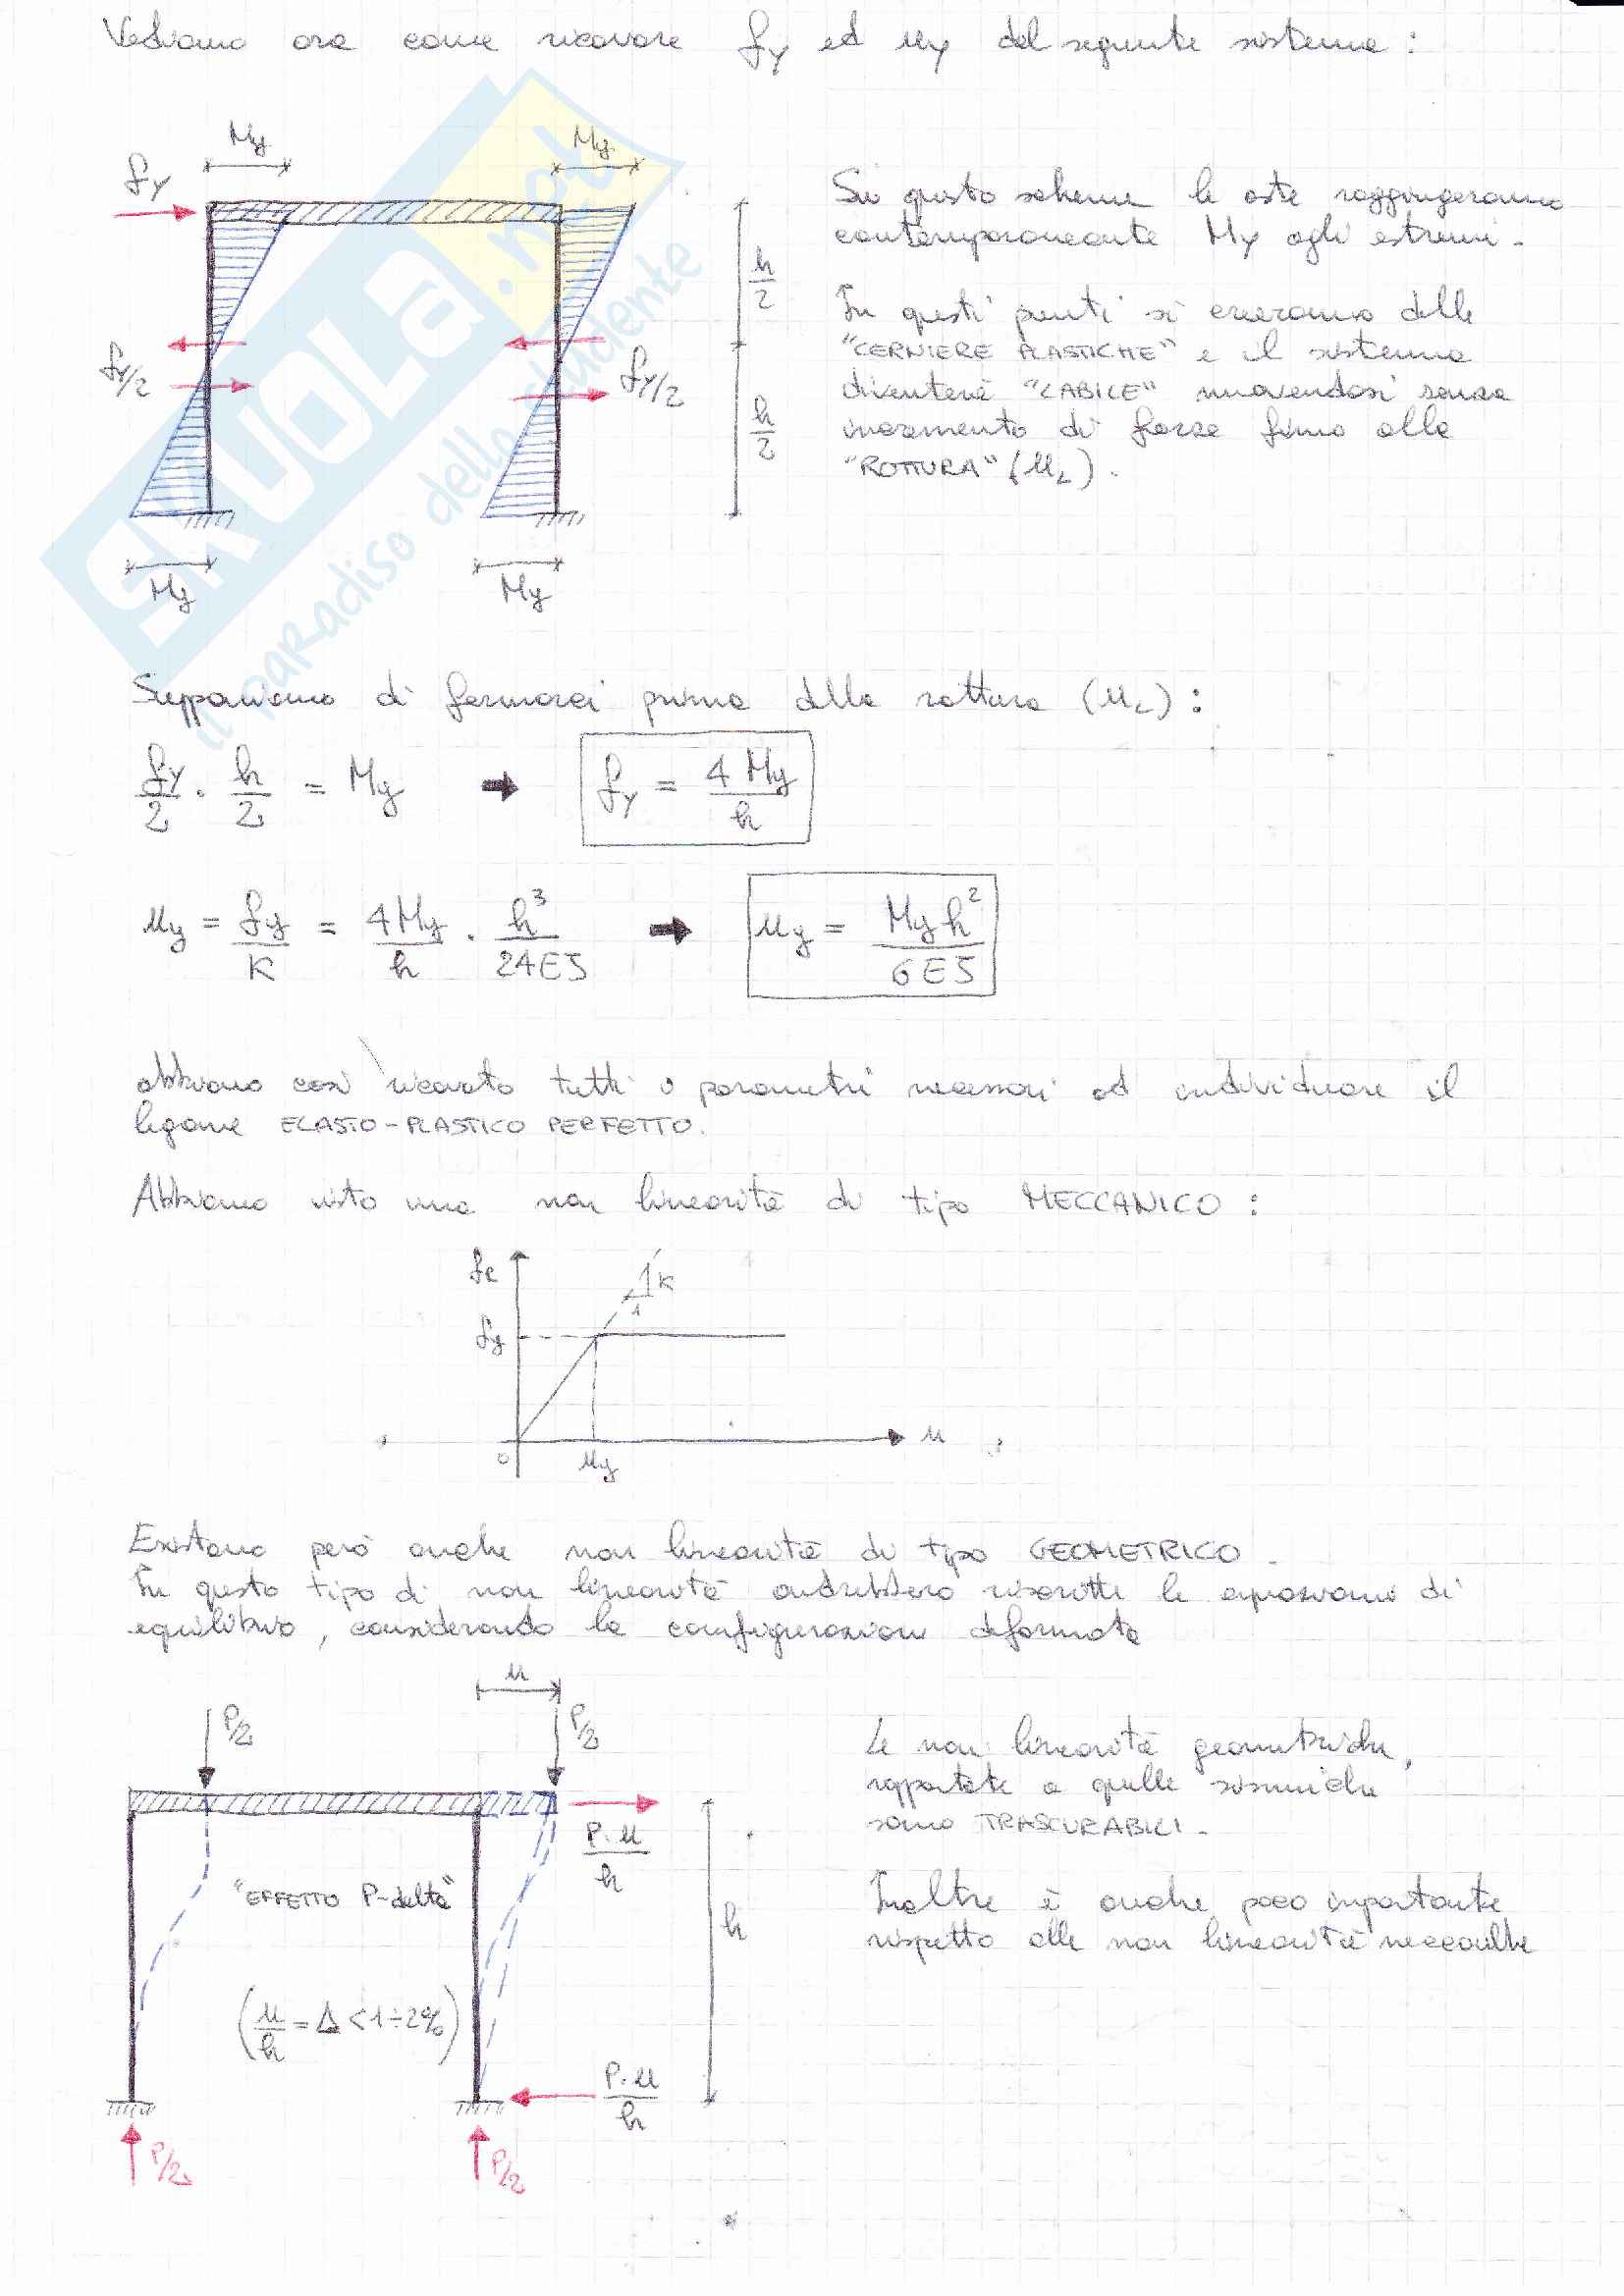 Vediamo ora come ricavare fy ed uy del seguente sistema :
My
My
fy
Su questo schema le aste raggiungeranno
contemporaneante My agli estremi.
h/2
In questi punti si creeranno delle
"CERNIERE PLASTICHE" e il sistema
fy/2
fy/2
diventerà "LABILE" muovendosi senza
h/2
incremento di forza fino alla
"ROTTURA" (uL).
My
My
SKUOLA.net
il paradiso dello studente
Supponiamo di fermarci prima della rottura (uL) :
fy/2 · h/2 = My ➡ fy = 4 My/h
uy = fy/K = 4My/h · h³/24EJ ➡ uy = My h²/6EJ
abbiamo così ricavato tutti i parametri necessari ad individuare il
legame ELASTO-PLASTICO PERFETTO.
Abbiamo visto una non linearità di tipo MECCANICO :
K
1
fy
0
uy
u
Esistono però anche non linearità di tipo GEOMETRICO.
In questo tipo di non linearità andrebbero riscritte le espressioni di
equilibrio, considerando la configurazione deformata
u
P/2
P/2
Le non linearità geometriche,
rapportate a quelle sismiche
sono TRASCURABILI.
P·u/h
"EFFETTO P-delta"
h
Inoltre è anche poco importante
rispetto alle non linearità meccaniche
(u/h = Δ < 1÷2%)
P·u/h
P/2
P/2